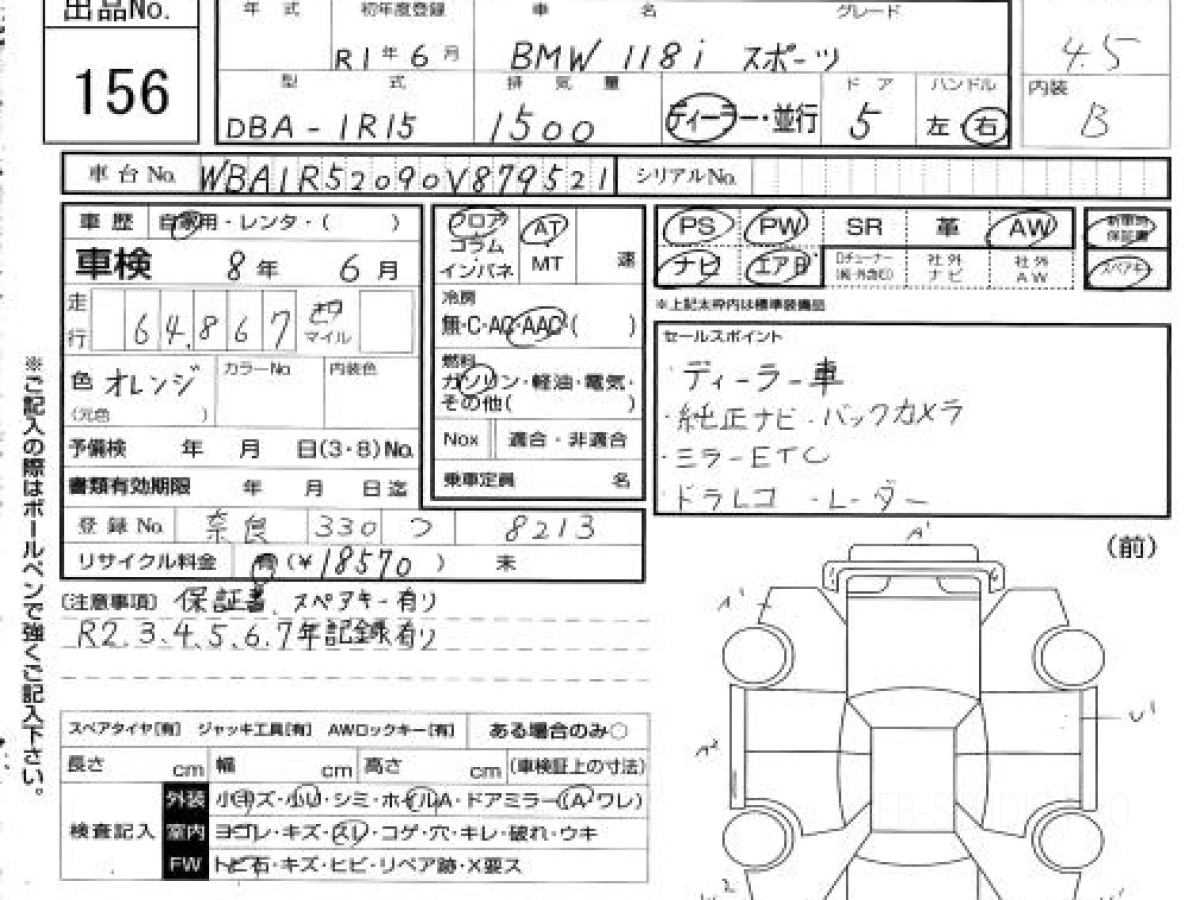 出品No.
156
年 式
初年度登録
車 名
グレード
R1年6月
BMW 118i スポーツ
4.5
型 式
排 気 量
ド ア
ハンドル
内装
DBA-1R15
1500
ディーラー・並行
5
左 右
B
車台No. WBA1R52090V879521
シリアルNo.
車歴 自家用・レンタ・( )
車検 8年 6月
走行 64,867 マイル
色 オレンジ
(元色 )
カラーNo
内装色
予備検 年 月 日(3・8)No.
書類有効期限 年 月 日迄
登録No. 奈良 330 つ 8213
リサイクル料金 (¥18570 ) 未
フロア
コラム
インパネ
AT
MT
速
冷房
無・C・AC・AAC( )
燃料
ガソリン・軽油・電気・
その他( )
Nox 適合・非適合
乗車定員 名
PS PW SR 革 AW
新車時保証書
ナビ エアB
社外ナビ
社外AW
スペアキー
※上記太枠内は標準装備品
セールスポイント
・ディーラー車
・純正ナビ・バックカメラ
・ミラーETC
・ドラレコ ・レーダー
(注意事項) 保証書、スペアキー有り
R2.3.4.5.6.7年記録有り
※ご記入の際はボールペンで強くご記入下さい。
スペアタイヤ[有] ジャッキ工具[有] AWロックキー[有] ある場合のみ○
長さ cm 幅 cm 高さ cm (車検証上の寸法)
検査記入
外装 小キズ・小U・シミ・ホイルA・ドアミラー(A・ワレ)
室内 ヨゴレ・キズ・スレ・コゲ・穴・キレ・破れ・ウキ
FW トビ石・キズ・ヒビ・リペア跡・X要ス
(前)
A1
A1
U1
A2